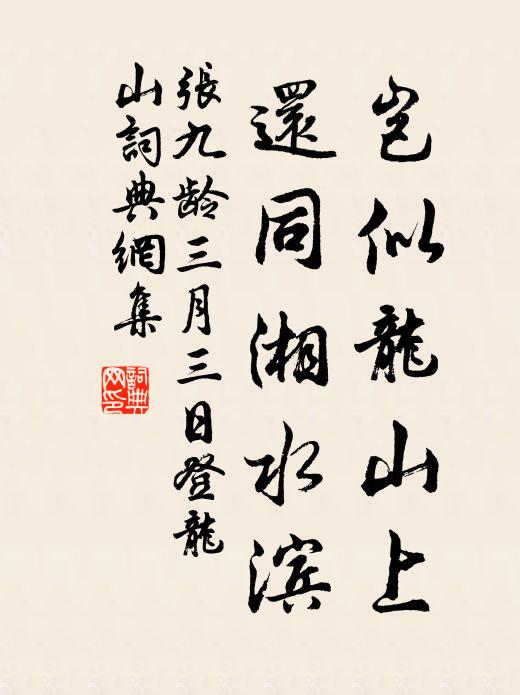 岂似龍山上
還同湘水滨
張九龄三月三日登龍
山詞典網集
詞典
网印